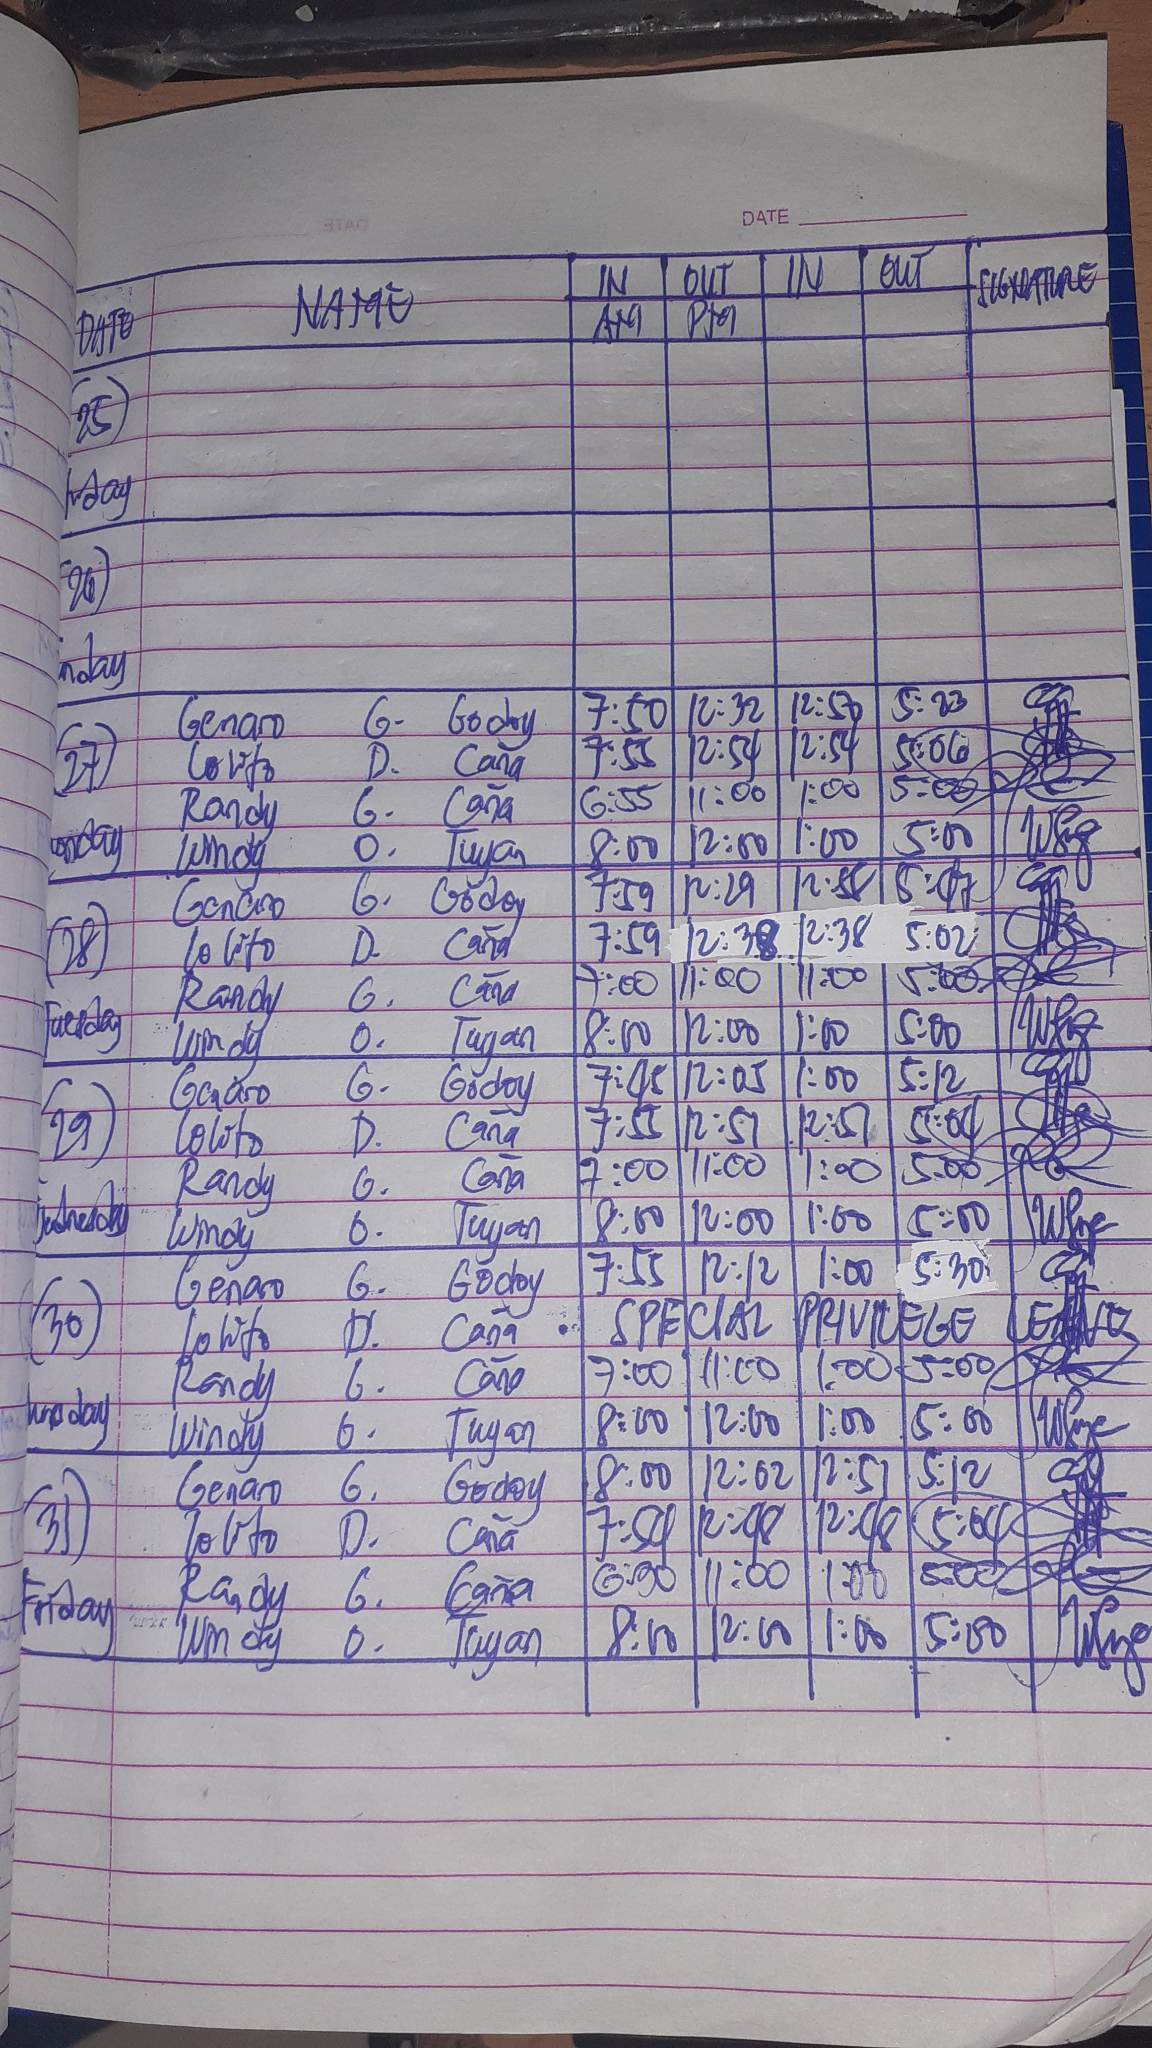 DATE
DATE NAME IN OUT IN OUT SIGNATURE
AM PM
(25)
day
(26)
nday
Genaro G. Godoy 7:50 12:32 12:50 5:23
(27) Lolito D. Caña 7:55 12:54 12:54 5:06
Randy G. Caña 6:55 11:00 1:00 5:00
onday Windy O. Tuyan 8:00 12:00 1:00 5:00
Genaro G. Godoy 7:59 12:29 5:47
(28) Lolito D. Caña 7:59 12:38 12:38 5:02
Randy G. Caña 7:00 11:00 11:00 5:00
Tuesday Windy O. Tuyan 8:00 12:00 1:00 5:00
Genaro G. Godoy 7:45 12:05 1:00 5:12
(29) Lolito D. Caña 7:55 12:51 12:51 5:04
Randy G. Caña 7:00 11:00 1:00 5:00
Wednesday Windy O. Tuyan 8:00 12:00 1:00 5:00
Genaro G. Godoy 7:55 12:12 1:00 5:30
(30) Lolito D. Caña SPECIAL PRIVILEGE LEAVE
Randy G. Caña 7:00 11:00 1:00 5:00
Windy O. Tuyan 8:00 12:00 1:00 5:00
Genaro G. Godoy 8:00 12:02 12:51 5:12
(31) Lolito D. Caña 7:54 12:48 12:48 5:04
Randy G. Caña 6:30 11:00 1:00 5:00
Friday Windy O. Tuyan 8:00 12:00 1:00 5:00